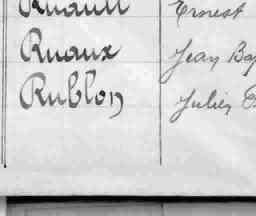 Ruault Ernest
Ruaux Jean Bap
Rublon Julien